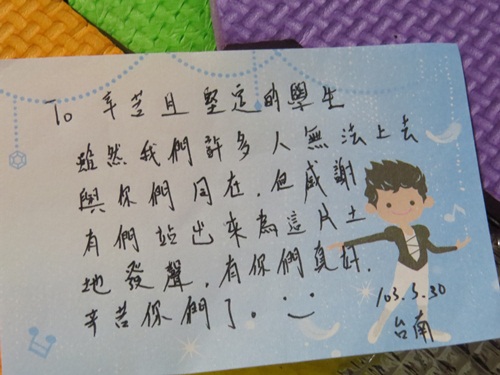 To 辛苦且堅定的學生
雖然我們許多人無法上去
與你們同在,但感謝
有們站出來為這片土
地發聲,有你們真好.
辛苦你們了。
103.3.30
台南